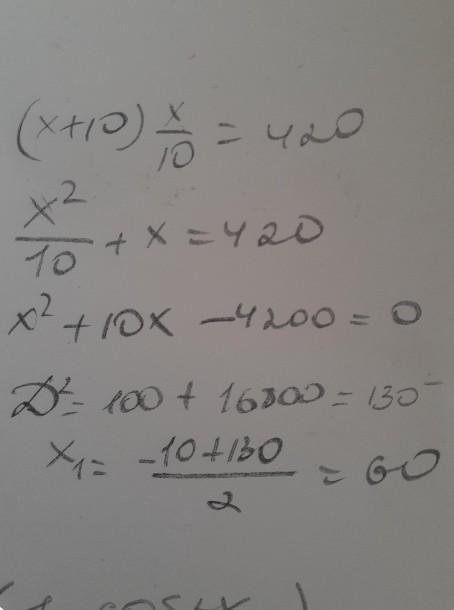 (x+10) x/10 = 420
x²/10 + x = 420
x² + 10x - 4200 = 0
D² = 100 + 16800 = 130⁻
x₁ = (-10+130)/2 = 60